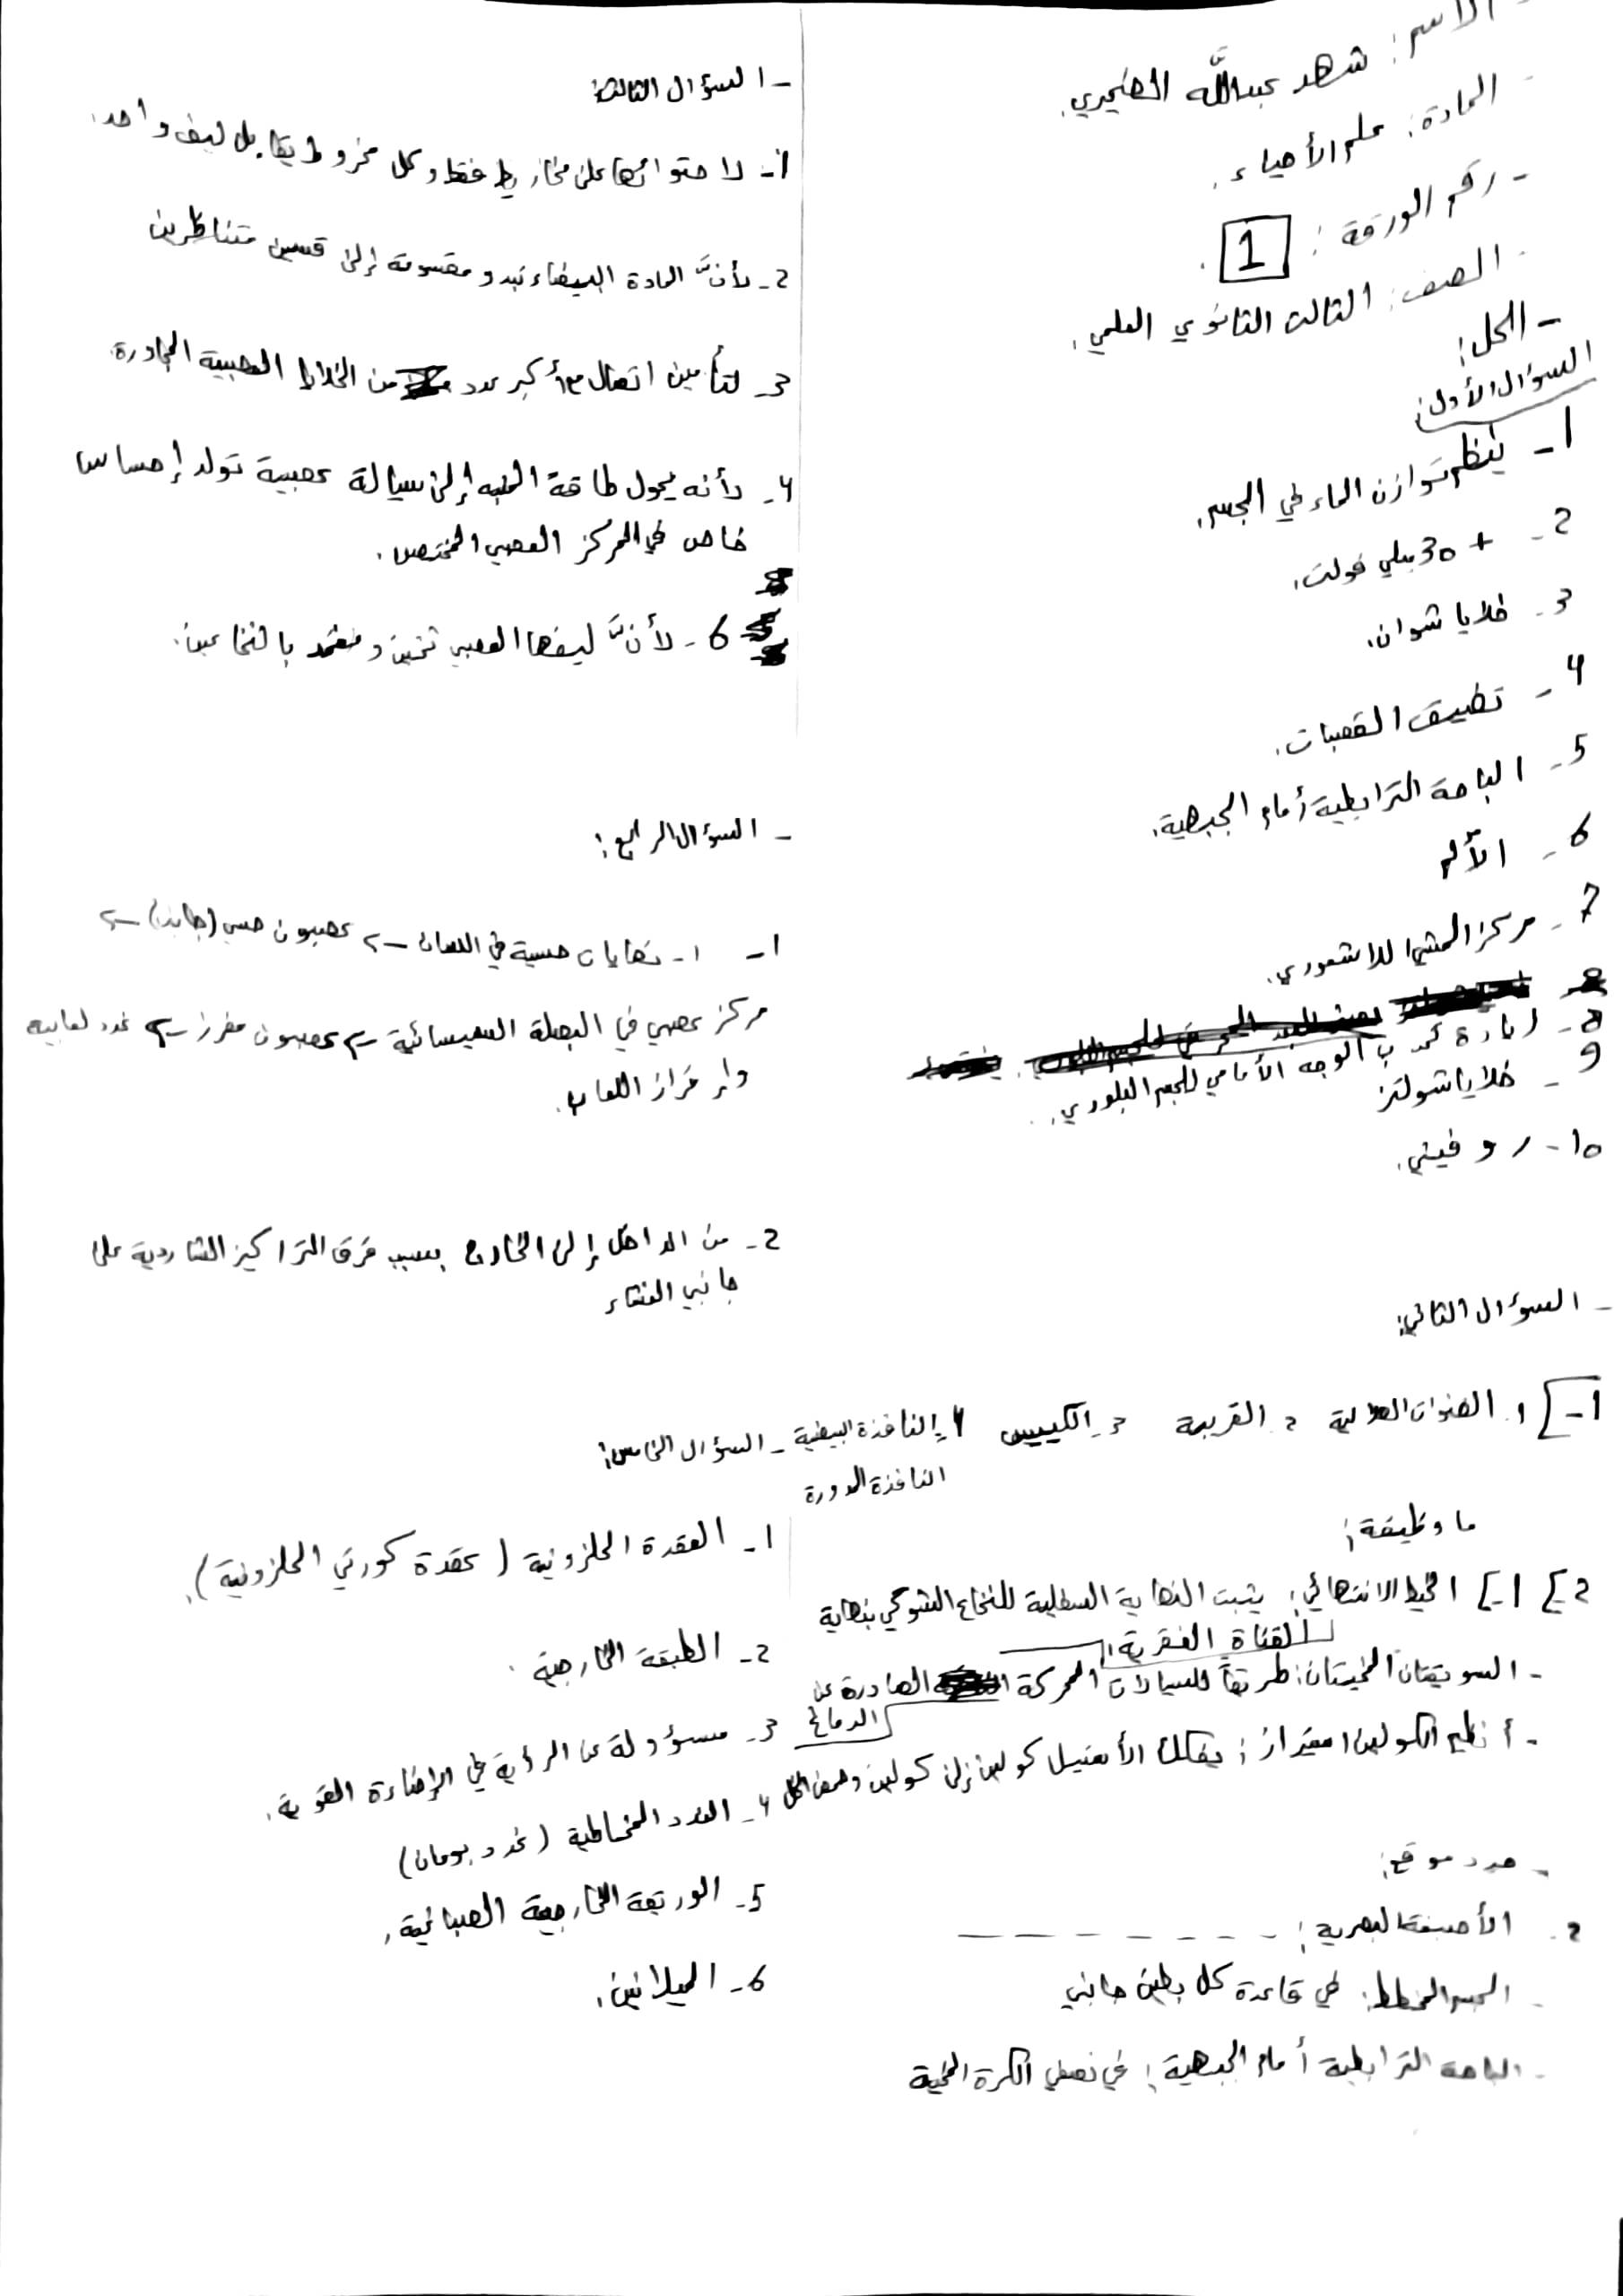 - الاسم: شهد عبدالله الضيجري.
- المادة: علم الأحياء.
- رقم الورقة: 1.
- الصف: الثالث الثانوي العلمي.
- الحل:
السؤال الأول:
1- ينظم توازن الماء في الجسم.
2- +30 ميلي فولت.
3- خلايا شوان.
4- تضييق القصبات.
5- الباحة الترابطية أمام الجبهية.
6- الألم
7- مركز المشي اللاشعوري.
8- زيادة تحدب الوجه الأمامي للجسم البلوري.
9- خلايا شولتز
10- روفيني.
- السؤال الثاني:
1-] 1. القنوات الهلالية 2. القريبة 3- الكييس 4- النافذة البيضية
النافذة المدورة
ما وظيفة:
2] 1-] الخيط الانتهائي: يثبت النهاية السفلية للنخاع الشوكي بنهاية
القناة الفقرية.
- السويقتان المخيتان: طريقاً للسيالات المحركة الصادرة عن
الدماغ
- أنظيم الكولين استيراز: يفكك الأستيل كولين إلى كولين وحمض الخل
- حدد موقع:
2- الأصبغة البصرية: - - - - - - - -
- الجسم المخطط: في قاعدة كل بطين جانبي
- الباحة الترابطية أمام الجبهية: في نصفي الكرة المخية
- السؤال الثالث:
1- لاحتوائها على مخاريط فقط وكل مخروط يقابل ليف واحد.
2- لأنّ المادة البيضاء تبدو مقسومة إلى قسمين متناظرين
3- لتأمين اتصال مع أكبر عدد من الخلايا العصبية المجاورة.
4- لأنه يحول طاقة المنبه إلى سيالة عصبية تولد إحساسا
خاص في المركز العصبي المختص.
6- لأنّ ليفها العصبي ثخين ومغمد بالنخاعين.
- السؤال الرابع:
1- 1- نهايات حسية في اللسان -> عصبون حسي (جابذ) ->
مركز عصبي في البصلة السيسائية -> عصبون مفرز -> غدد لعابية
وإفراز اللعاب.
2- من الداخل إلى الخارج بسبب فرق التراكيز الشاردية على
جانبي الغشاء
- السؤال الخامس:
1- العقدة الحلزونية (عقدة كورتي الحلزونية).
2- الطبقة الخارجية.
3- مسؤولة عن الرؤية في الإضاءة القوية.
4- الغدد المخاطية (غدد بومان)
5- الوريقة الخارجية الصباغية.
6- الميلانين.